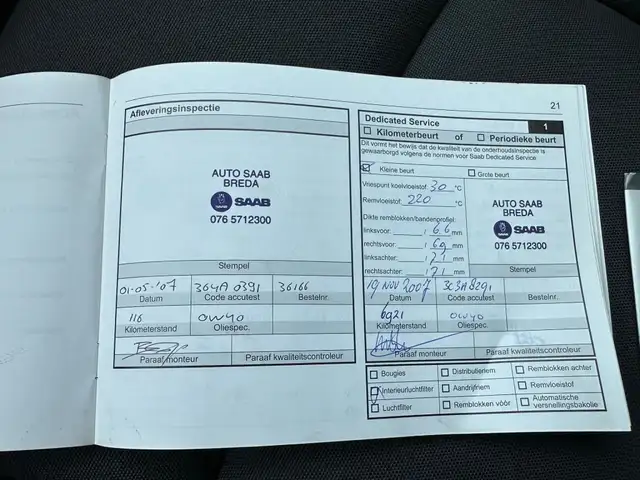 21
Afleveringsinspectie
AUTO SAAB
BREDA
SAAB
076 5712300
Stempel
01-05-'07 364A 0391 36166
Datum Code accutest Bestelnr.
116 OW40
Kilometerstand Oliespec.
Paraaf monteur Paraaf kwaliteitscontroleur
Dedicated Service 1
Kilometerbeurt of Periodieke beurt
Dit vormt het bewijs dat de kwaliteit van de onderhoudsinspectie is
gewaarborgd volgens de normen voor Saab Dedicated Service
Kleine beurt Grote beurt
Vriespunt koelvloeistof: 30 °C
Remvloeistof: 220 °C
Dikte remblokken/bandenprofiel:
linksvoor: / 6.6 mm
rechtsvoor: / 69 mm
linksachter: / 7.1 mm
rechtsachter: / 7.1 mm
AUTO SAAB
BREDA
SAAB
076 5712300
Stempel
19 NOV 2007 3C3A8291
Datum Code accutest Bestelnr.
6921 OW40
Kilometerstand Oliespec.
Paraaf monteur Paraaf kwaliteitscontroleur
Bougies Distributieriem Remblokken achter
Interieurluchtfilter Aandrijfriem Remvloeistof
Luchtfilter Remblokken vóór Automatische
versnellingsbakolie